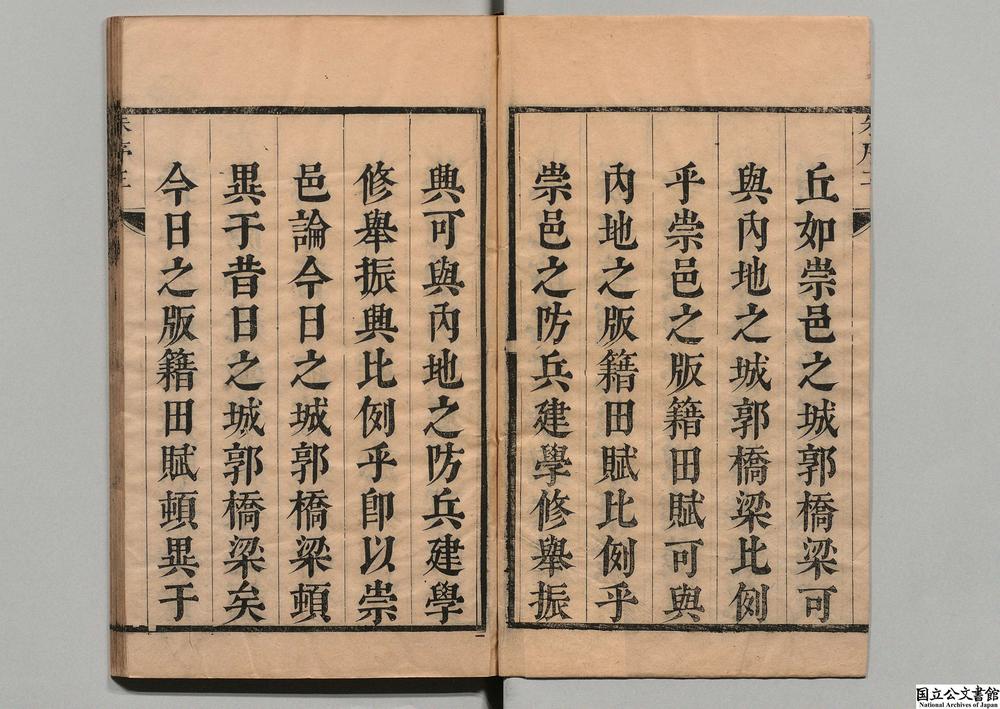 丘如崇邑之城郭橋梁可
與內地之城郭橋梁比例
乎崇邑之版籍田賦可與
內地之版籍田賦比例乎
崇邑之防兵建學修舉振
興可與內地之防兵建學
修舉振興比例乎卽以崇
邑論今日之城郭橋梁頓
異于昔日之城郭橋梁矣
今日之版籍田賦頓異于
国立公文書館
National Archives of Japan